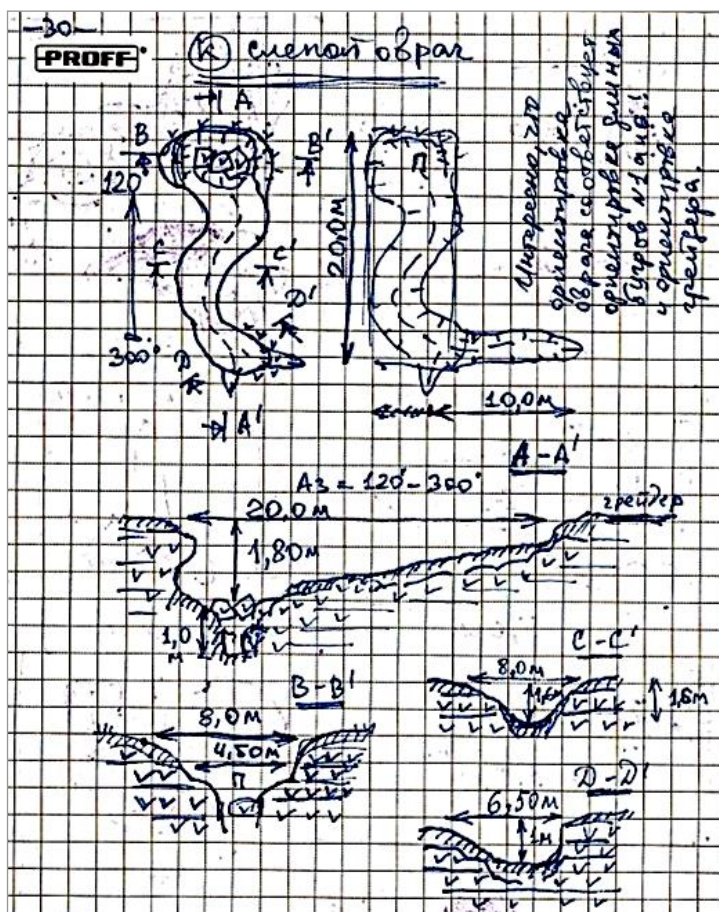 —30—
PROFF
К слепой овраг
А
В
В'
120°
С
С'
D'
300°
D
А'
П
20,0м
10,0м
Интересно, что
ориентировка
оврага соответствует
ориентировке длинных
бугров №1 и №2!!
и ориентировке
грейдера.
А-А'
Аз = 120°-300°
20.0м
грейдер
1,80м
1,0
м
П
С-С'
8,0м
1,6м
1,6м
В-В'
8,0м
4,50м
П
D-D'
6,50м
1м